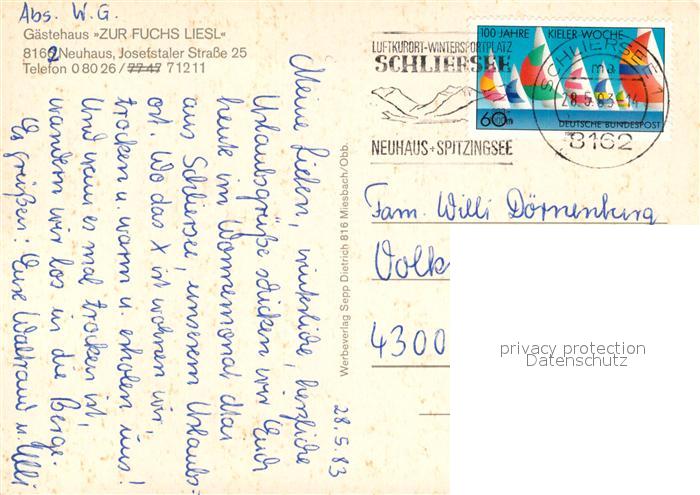 Abs. W. G.
Gästehaus »ZUR FUCHS LIESL«
8162 Neuhaus, Josefstaler Straße 25
Telefon 0 80 26 / 77 47 71211
Meine Lieben, winterliche, herzliche
Urlaubsgrüße schicken wir Euch
heute im Wonnemonat Mai
aus Schliersee, unserem Urlaubs=
ort. Wo das X ist wohnen wir,
trocken u. warm u. erholen uns!
Und wenn es mal trocken ist,
wandern wir los in die Berge.
Es grüßen: Eure Waltraud u. Willi
28.5.83
Werbeverlag Sepp Dietrich 816 Miesbach/Obb.
LUFTKURORT-WINTERSPORTPLATZ
SCHLIERSEE
NEUHAUS+SPITZINGSEE
100 JAHRE KIELER-WOCHE
60
DEUTSCHE BUNDESPOST
SCHLIERSEE 1
ma
28.5.83-14
8162
Fam. Willi Dörnenburg
Volk
4300
privacy protection
Datenschutz